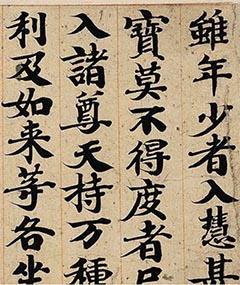 雖年少者入慧甚
寶莫不得度者
入諸尊天持万種
利及如来等各坐